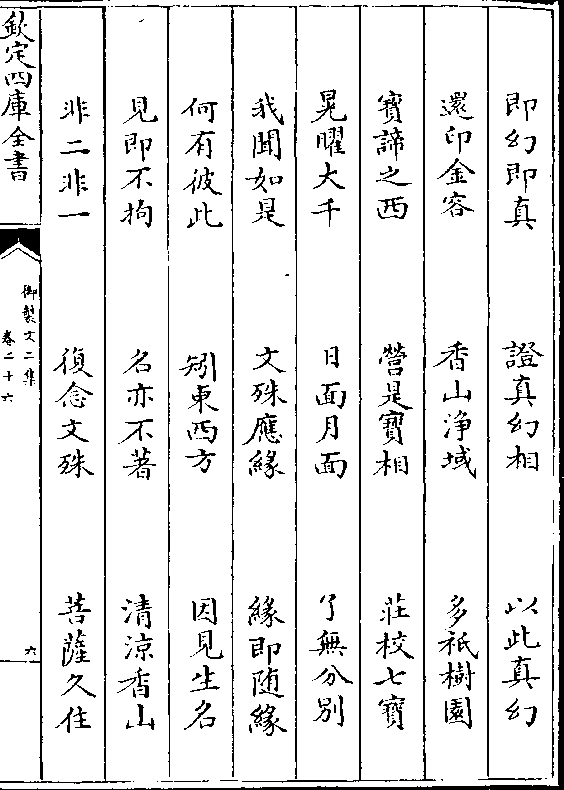 即幻即真 證真幻相 以此真幻
還印金容 香山淨域 多祇樹園
寶諦之西 營是寶相 莊校七寶
晃曜大千 日面月面 了無分別
我聞如是 文殊應緣 緣即随緣
何有彼此 矧東西方 因見生名
見即不拘 名亦不著 清涼香山
非二非一 復念文殊 菩薩久住
欽定四庫全書
御製文二集
卷二十六
六